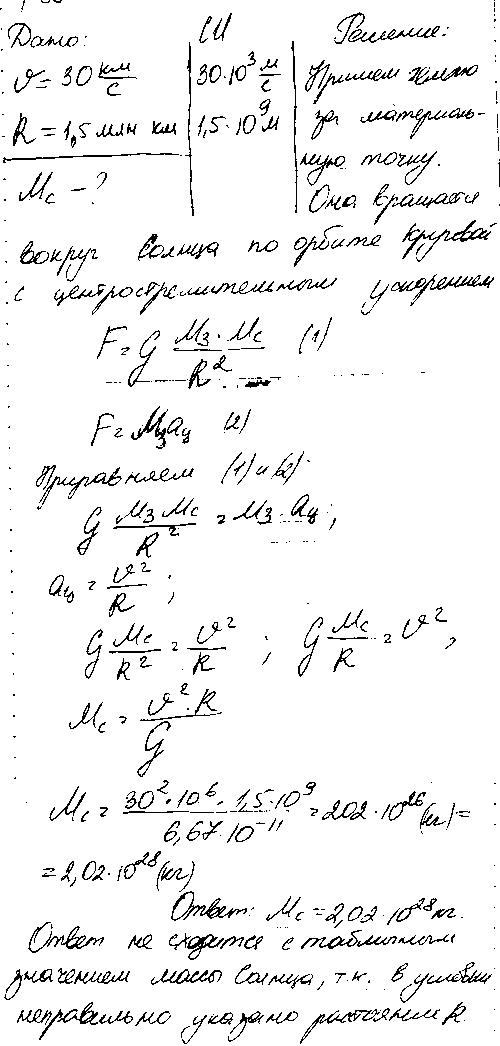 Дано: СИ Решение:
𝜗 = 30 км/с 30·10³ м/с Примем землю
R = 1,5 млн км 1,5·10⁹ м за материаль-
Mс - ? ную точку.
Она вращается
вокруг Солнца по орбите круговой
с центростремительным ускорением
F = G Mз·Mс/R² (1)
F = Mзaц (2)
Приравняем (1) и (2):
G MзMс/R² = Mз·aц;
aц = 𝜗²/R;
G Mс/R² = 𝜗²/R; G Mс/R = 𝜗²,
Mс = 𝜗²·R/G
Mс = 30²·10⁶·1,5·10⁹/6,67·10⁻¹¹ = 202·10²⁶ (кг) =
= 2,02·10²⁸ (кг)
Ответ: Mс = 2,02·10²⁸ кг.
Ответ не сходится с табличным
значением массы Солнца, т.к. в условии
неправильно указано расстояние R